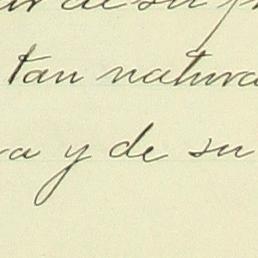 de su
tan natura
a y de su